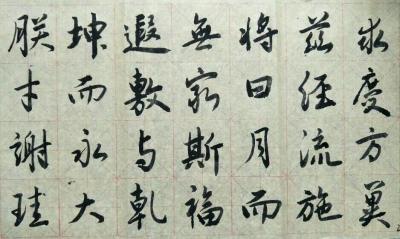 求慶方冀
茲經流施
將日月而
無窮斯福
遐敷与乾
坤而永大
朕才謝珪